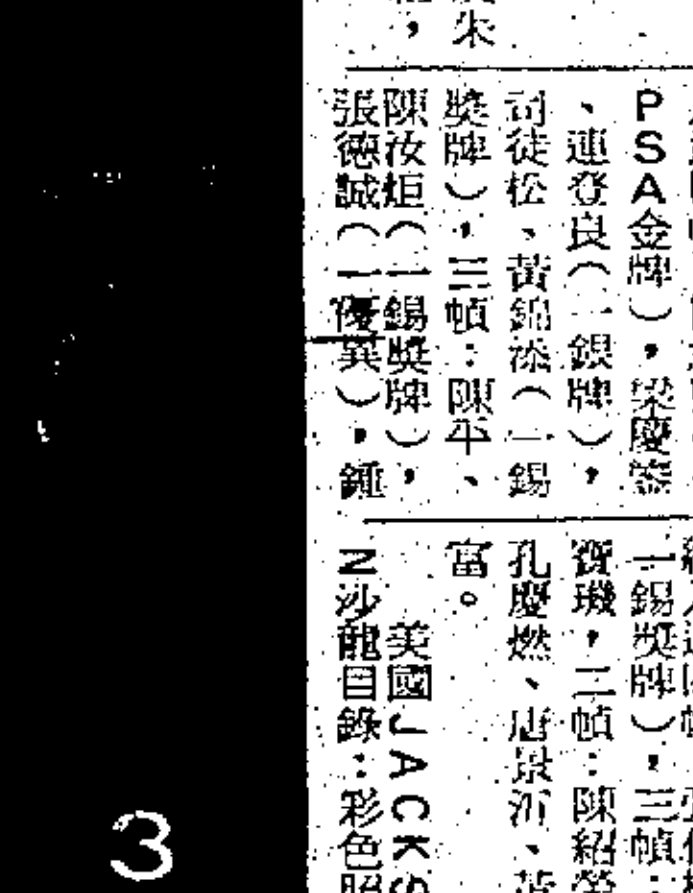 朱
，
PSA金牌），梁慶鎏
、連登良（一銀牌），
司徒松、黃錦添（一錫
獎牌），三幀：陳平、
陳汝炬（一錫獎牌），
張德誠（一優異），鍾
一錫獎牌），三幀：
寶璣，二幀：陳紹榮
孔慶燃、唐景沂、黃
富。
美國JACKS
N沙龍目錄：彩色照
3